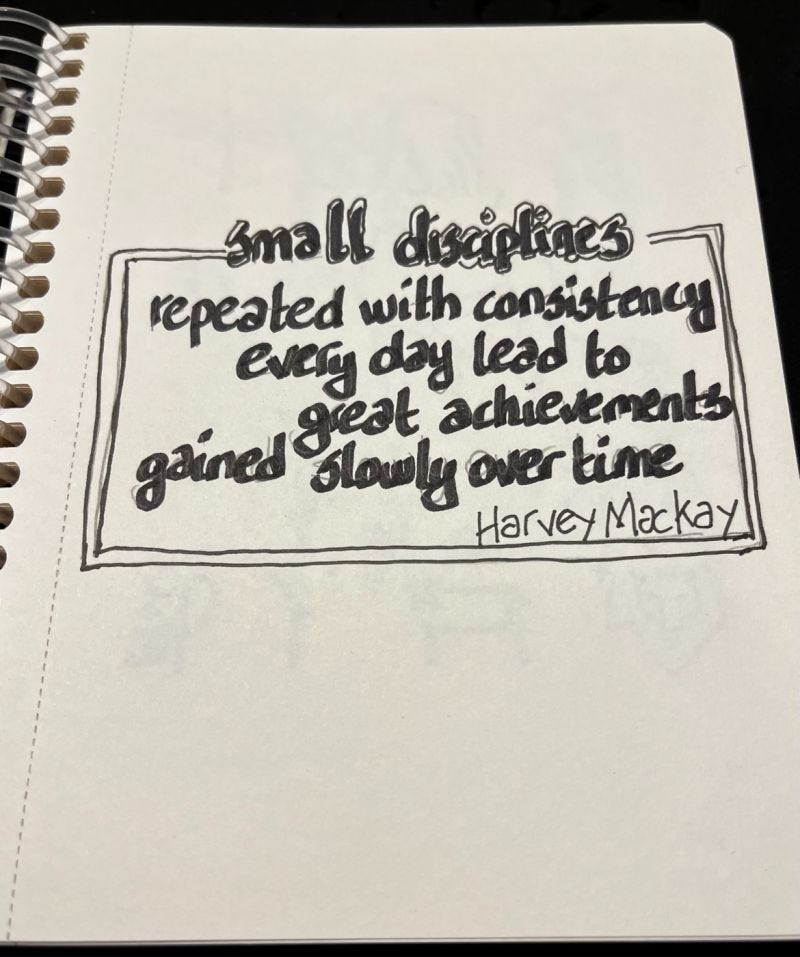 small disciplines
repeated with consistency
every day lead to
great achievements
gained slowly over time
Harvey Mackay